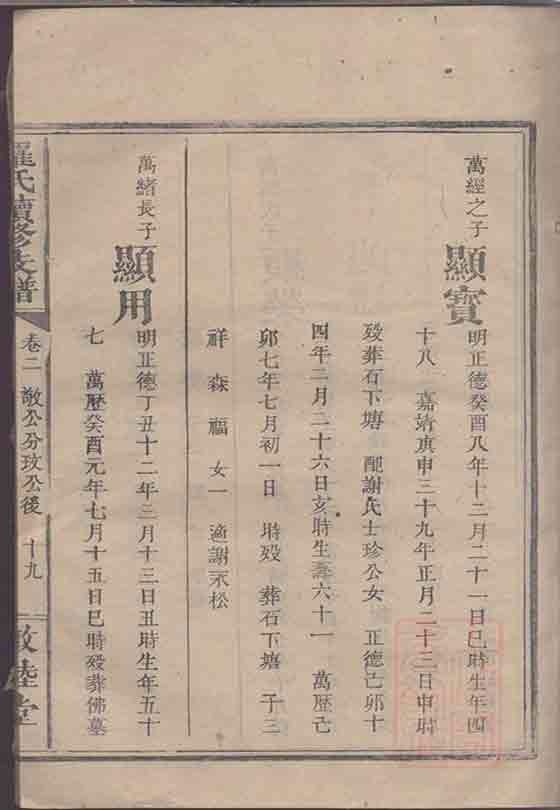 萬經之子
顯寶
明正德癸酉八年十二月二十一日巳時生年四
十八 嘉靖庚申三十九年正月二十三日申時
歿葬石下塘 配謝氏士珍公女 正德己卯十
四年二月二十六日亥時生壽六十一 萬歷己
卯七年七月初一日 時歿 葬石下塘 子三
祥 森 福 女一 適謝永松
萬緒長子
顯用
明正德丁丑十二年三月十三日丑時生年五十
七 萬歷癸酉元年七月十五日巳時歿葬佛墓
羅氏續修支譜
卷二 敵公分玟公後 十九
敦睦堂